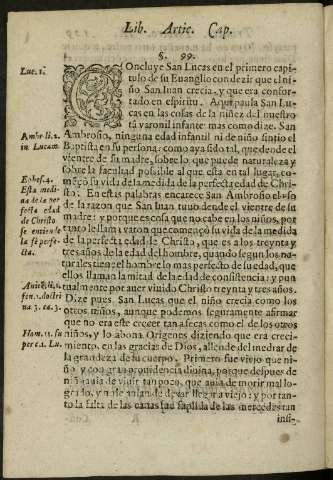 Lib. Artic. Cap.
§. 99.
Luc. 1.
COncluye San Lucas en el primero capi-
tulo de su Euanglio con dezir que el ni-
ño San Iuan crecia, y que era confor-
tado en espiritu. Aqui paula San Lu-
cas en las cosas de la niñez del nuestro
tã varonil infante: mas como dize San
Ambrosio, ninguna edad infantil ni de niño sintio el
Baptista en su persona: como aya sido tal, que desde el
vientre de su madre, sobre lo que puede naturaleza y
sobre la facultad possible al que esta en tal lugar, co-
mẽço su vida de la medida de la perfecta edad de Chri-
sto. En estas palabras encarece San Ambrosio el vso
de la razon que San Iuan tuuo desde el vientre de su
madre: y porque es cosa que no cabe en los niños, por
tanto le llamã varon que començo su vida de la medida
de la perfecta edad de Christo, que es a los treynta y
tres años de la edad del hombre, quando segun los na-
turales tiene el hombre lo mas perfecto de su edad, que
ellos llaman la mitad de la edad de consistencia: y pun
tualmente por auer viuido Christo treynta y tres años.
Dize pues San Lucas que el niño crecia como los
otros niños, aunque podemos seguramente afirmar
que no era este crecer tan a secas como el de los otros
niños, y lo abona Origenes diziendo que era creci-
miento en las gracias de Dios, allende del medrar de
la grandeza de su cuerpo. Primero fue viejo que ni-
ño, y con gran prouidencia diuina, porque despues de
niño auia de viuir tan poco, que auia de morir mal lo-
grado, y no auia de llegar a viejo: y por tan-
to la falta de las canas fue suplida de las mercedes tan
insi-
Ambr. li. 2.
in Lucam
Ephes. 4.
Esta medi-
da de la per
fecta edad
de Christo
se entiende
la fe perfe-
cta.
Auic. li. 1.
fen. 1. doctri
na 3. ca. 3.
Hom. 11. su
per c. 1. Lu.